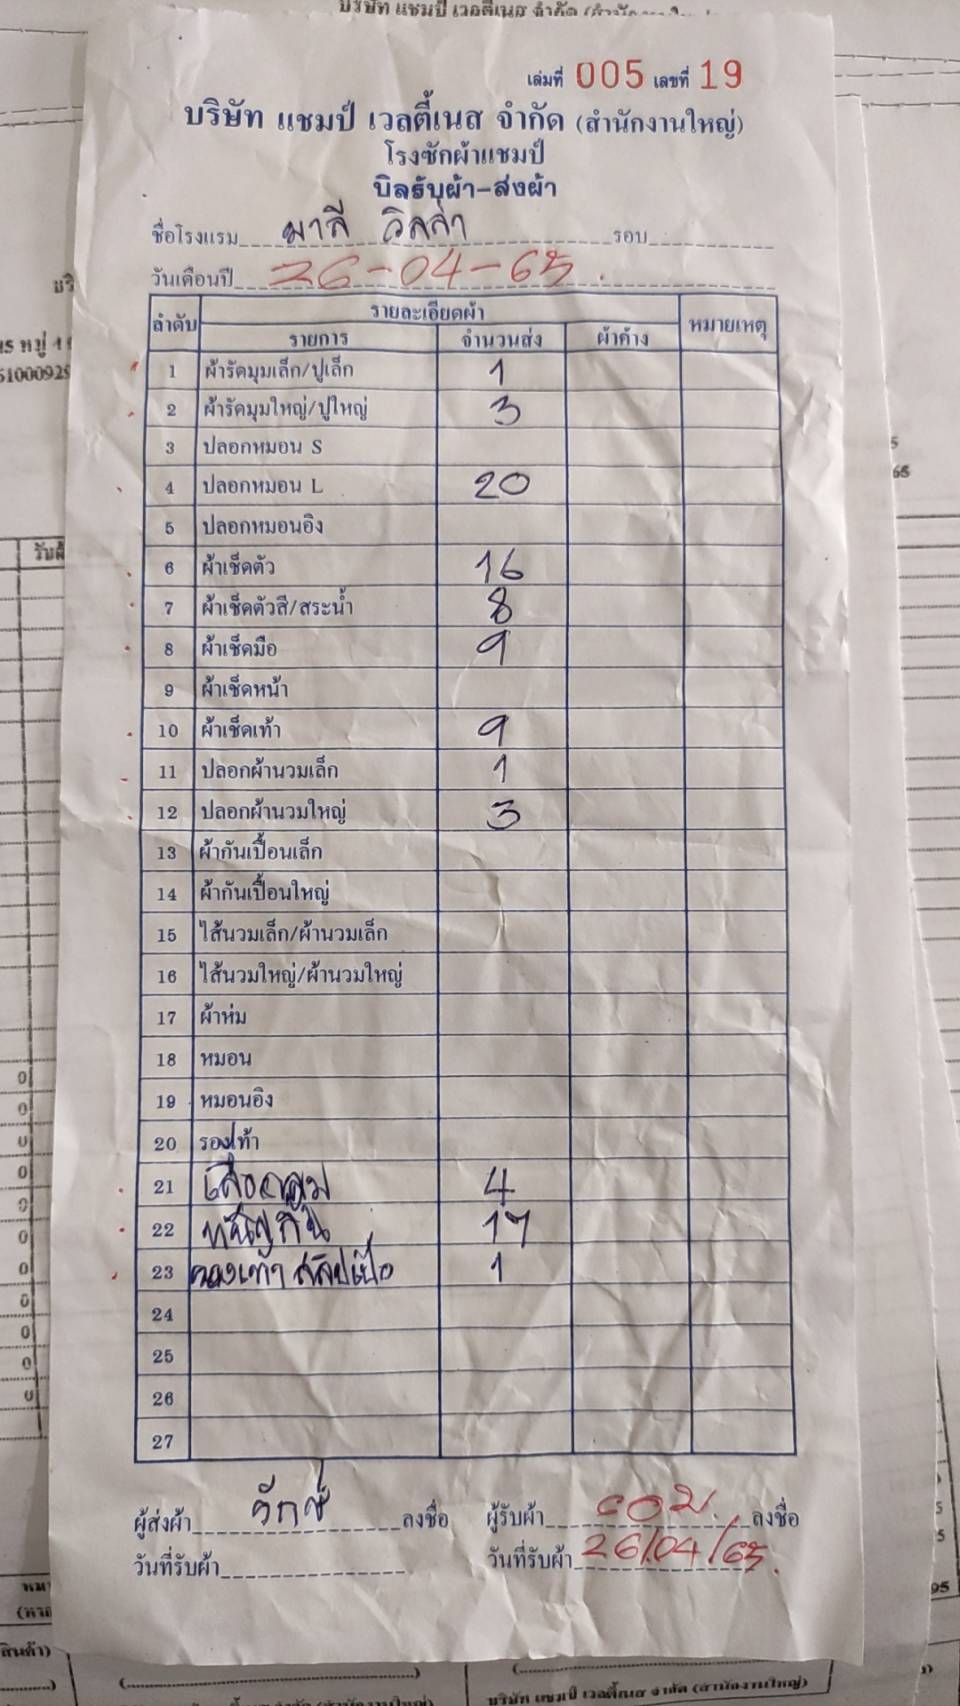 บริษัท แชมป์ เวลตี้เนส จำกัด (สำนักงานใหญ่)
เล่มที่ 005 เลขที่ 19
บริษัท แชมป์ เวลตี้เนส จำกัด (สำนักงานใหญ่)
โรงซักผ้าแชมป์
บิลรับผ้า-ส่งผ้า
ชื่อโรงแรม มาลี วิลล่า รอบ
วันเดือนปี 26-04-65.
ลำดับ รายละเอียดผ้า หมายเหตุ
รายการ จำนวนส่ง ผ้าค้าง
1 ผ้ารัดมุมเล็ก/ปูเล็ก 1
2 ผ้ารัดมุมใหญ่/ปูใหญ่ 3
3 ปลอกหมอน S
4 ปลอกหมอน L 20
5 ปลอกหมอนอิง
6 ผ้าเช็ดตัว 16
7 ผ้าเช็ดตัวสี/สระน้ำ 8
8 ผ้าเช็ดมือ 9
9 ผ้าเช็ดหน้า
10 ผ้าเช็ดเท้า 9
11 ปลอกผ้านวมเล็ก 1
12 ปลอกผ้านวมใหญ่ 3
13 ผ้ากันเปื้อนเล็ก
14 ผ้ากันเปื้อนใหญ่
15 ไส้นวมเล็ก/ผ้านวมเล็ก
16 ไส้นวมใหญ่/ผ้านวมใหญ่
17 ผ้าห่ม
18 หมอน
19 หมอนอิง
20 รองเท้า
21 เสื้อคลุม 4
22 17
23 รองเท้า สลิปเปอ 1
24
25
26
27
ผู้ส่งผ้า ลงชื่อ ผู้รับผ้า ลงชื่อ
วันที่รับผ้า วันที่รับผ้า 26/04/65.
บริษัท แชมป์ เวลตี้เนส จำกัด (สำนักงานใหญ่)